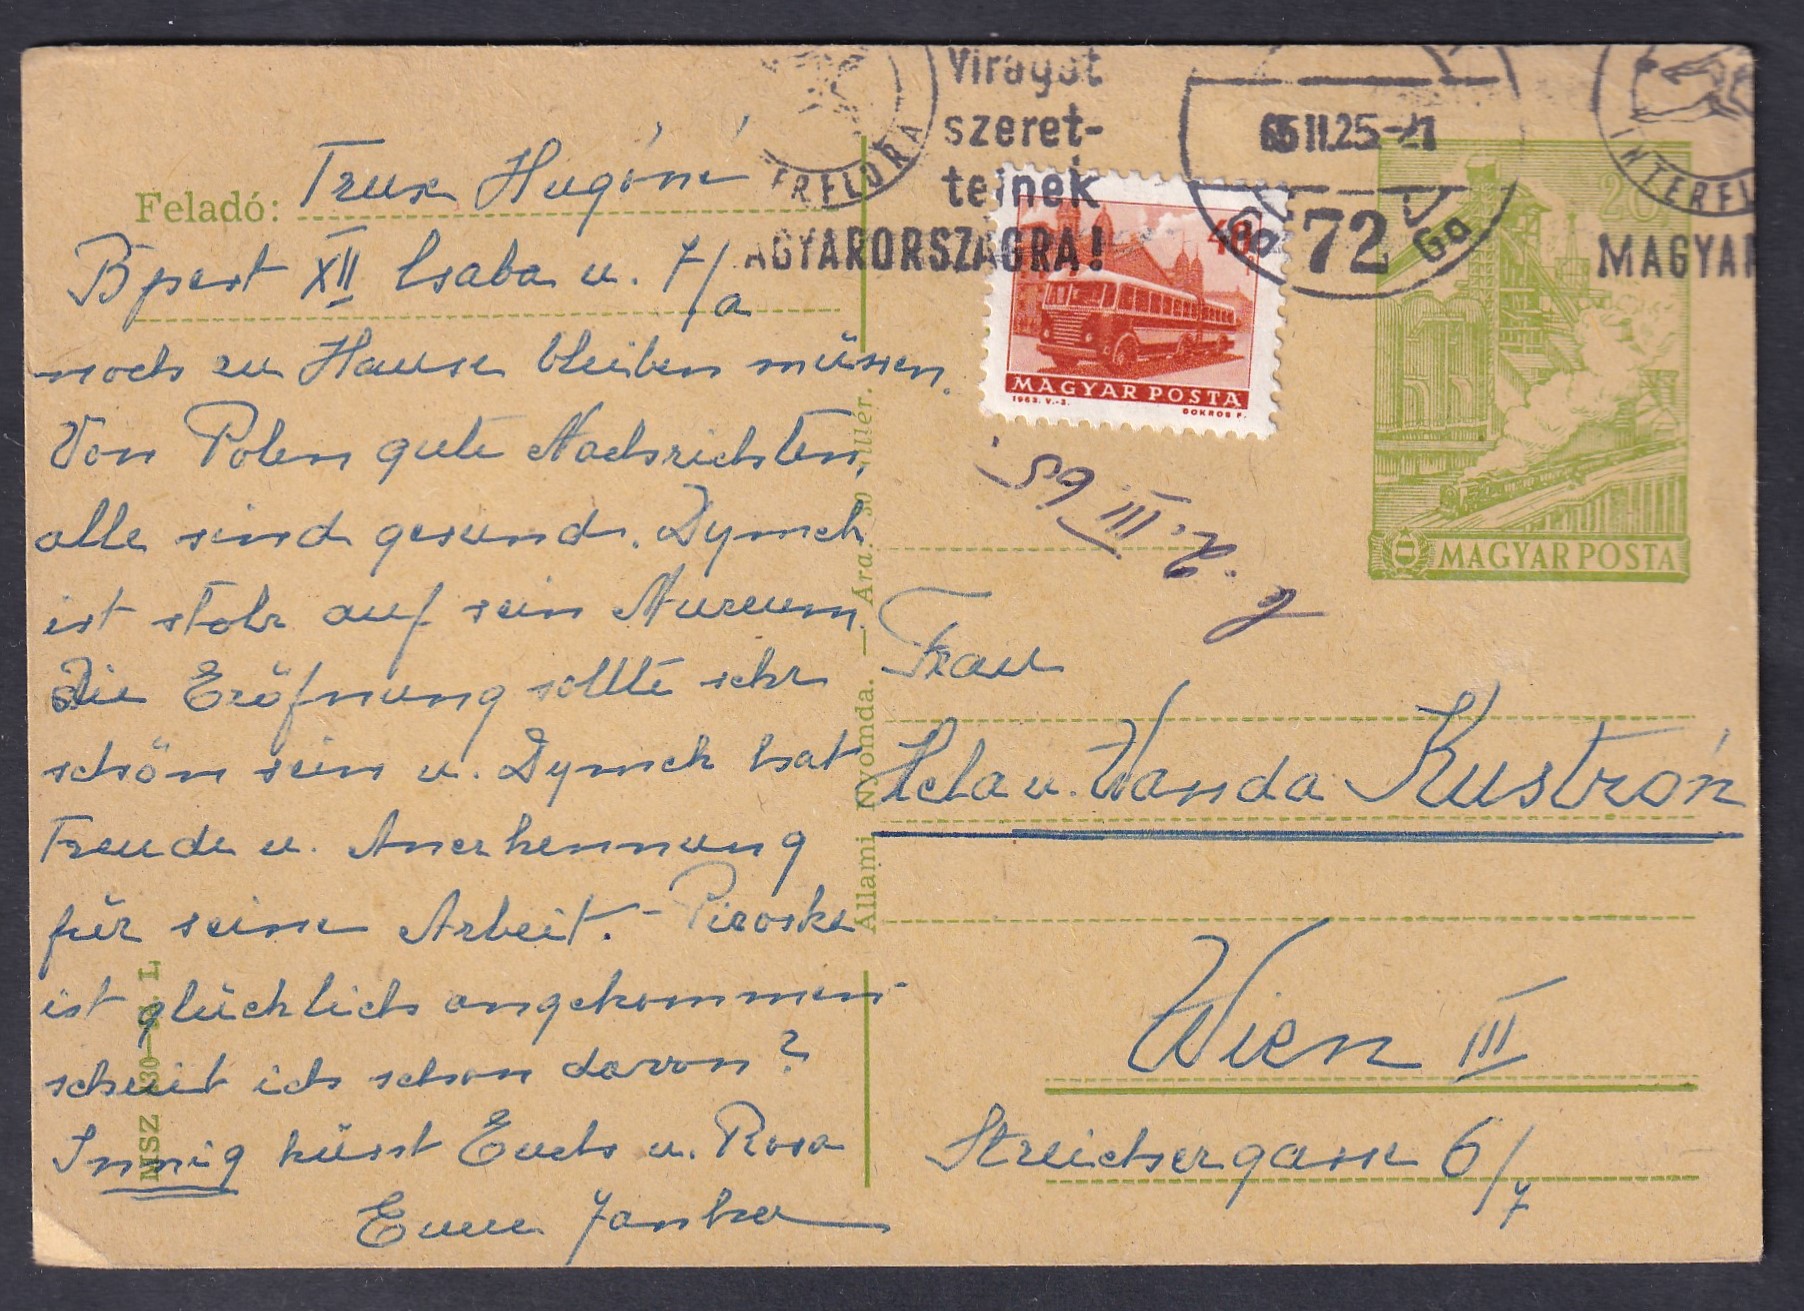 Feladó: Trux Hugóné
Bpest XII Csaba u. 7/a
noch zu Hause bleiben müssen.
Von Polen gute Nachrichten,
alle sind gesund. Dymek
ist stolz auf sein Museum.
Die Eröfnung sollte sehr
schön sein u. Dymek hat
Freude u. Anerkennung
für seine Arbeit. - Piroska
ist glücklich angekommen
schrieb ich schon davon?
Innig küsst Euch u. Rosa
Eure Janka
Virágot
szeret-
teinek
AGYARORSZÁGRA!
ERFLORA
65 II.25-21
72
INTERFL
MAGYAR
40
MAGYAR POSTA
1963. V.-2.
BOKROS F.
20
MAGYAR POSTA
2. III 65.
Frau
Hela u. Wanda Kustrón
Wien III
Streichergasse 6/7
Állami Nyomda. — Ára: 30 fillér.
MSZ